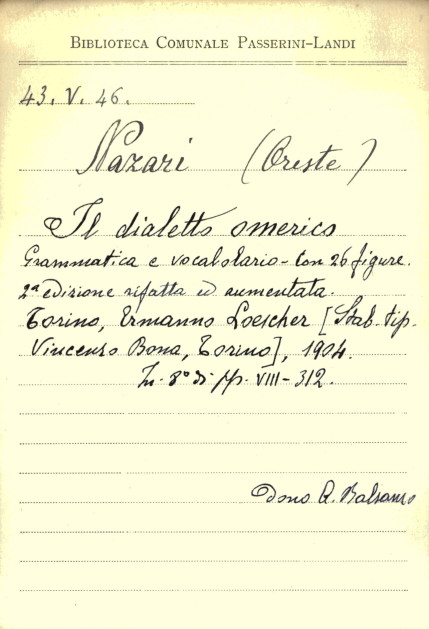 BIBLIOTECA COMUNALE PASSERINI-LANDI
43. V. 46.
Nazari (Oreste)
Il dialetto omerico
Grammatica e vocabolario - Con 26 figure.
2ª edizione rifatta ed aumentata.
Torino, Ermanno Loescher [Stab. tip.
Vincenzo Bona, Torino], 1904.
In-8° di pp. VIII-312.
Dono A. Balsamo